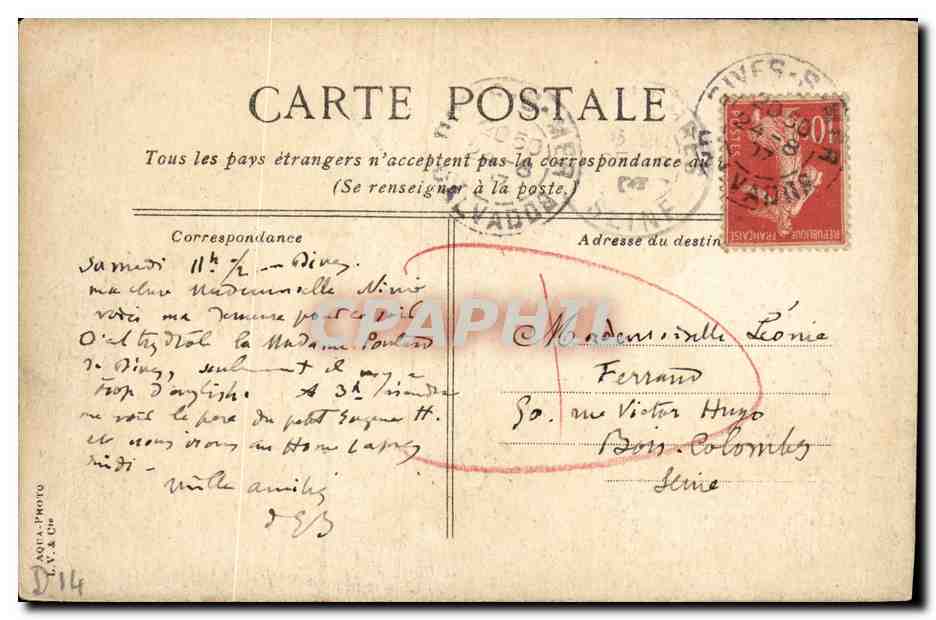 CARTE POSTALE
Tous les pays étrangers n'acceptent pas la correspondance au
(Se renseigner à la poste.)
Correspondance
Samedi 11h 1/2 - Dives
ma chère Mademoiselle Ninie
voici ma demeure pour ce soir
la Madame Poulard
de Dives, seulement il y a
trop d'anglish. A 3h
me voici le père du petit Eugène H.
et nous irons au Home l'après
midi -
mille amitiés
Adresse du destin
Mademoiselle Léonie
Ferrand
50. rue Victor Hugo
Bois-Colombes
Seine
DIVES-S-MER
20 30
24-8
CALVADOS
S-MER
CALVADOS
SEINE
10
POSTES
REPUBLIQUE FRANÇAISE
CPAPHIL
AQUA-PHOTO
L. V. & Cie
D14